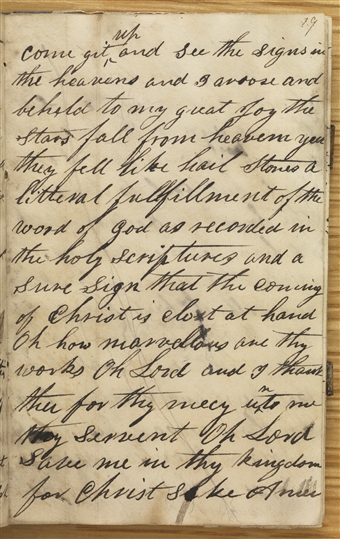 39
come git up and see the signs in
the heavens and I arose and
behold to my great Joy the
stars fall from heavem yea
they fell like hail stones a
litteral fulfillment of the
word of god as recorded in
the holy scriptures and a
sure sign that the coming
of Christ is clost at hand
Oh how marvellous are thy
works Oh Lord and I thank
thee for thy mecy unto me
thy servent Oh Lord
Save me in thy kingdom
for Christ Sake Amen